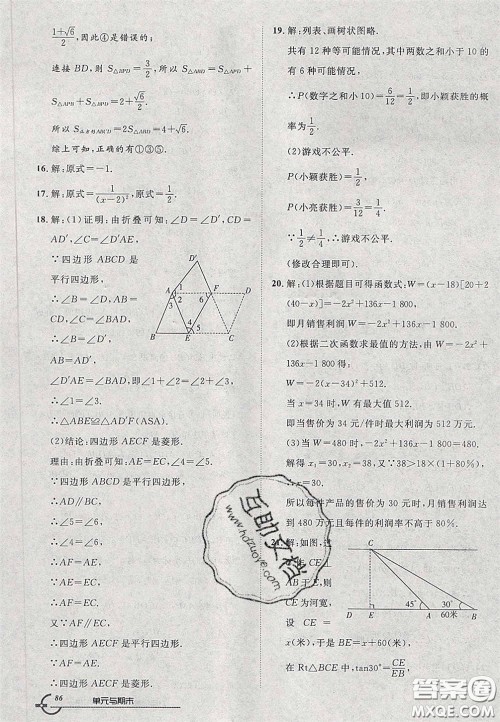 $\frac{1+\sqrt{6}}{2}$,因此④是错误的;
连接 BD,则 $S_{△BPD}=\frac{3}{2}$,所以 $S_{△ABD}=S_{△APD}+S_{△APB}+S_{△BPD}=2+\frac{\sqrt{6}}{2}$.
所以 $S_{正方形ABCD}=2S_{△ABD}=4+\sqrt{6}$.
综上可知,正确的有①③⑤.
16. 解:原式=-1.
17. 解:原式=$\frac{1}{(x-2)^2}$,原式=$\frac{1}{2}$.
18. 解:(1)证明:由折叠可知:∠D=∠D′,CD=
AD′,∠C=∠D′AE.
∵四边形 ABCD 是
平行四边形,
∴∠B=∠D,AB=
CD,∠C=∠BAD.
∴∠B=∠D′,AB=
AD′,∠D′AE=∠BAD,即∠1+∠2=∠2+∠3.
∴∠1=∠3.
∴△ABE≌△AD′F(ASA).
(2)结论:四边形 AECF 是菱形.
理由:由折叠可知:AE=EC,∠4=∠5.
∵四边形 ABCD 是平行四边形,
∴AD∥BC.
∴∠5=∠6.
∴∠4=∠6.
∴AF=AE.
∵AE=EC,
∴AF=EC.
又∵AF∥EC,
∴四边形 AECF 是平行四边形.
∵AF=AE,
∴四边形 AECF 是菱形.
86 单元与期末
19. 解:列表、画树状图略.
共有 12 种等可能情况,其中两数之和小于 10 的
有 6 种等可能情况,
∴P(数字之和小于10)=$\frac{6}{12}=\frac{1}{2}$,即小颖获胜的概
率为$\frac{1}{2}$.
(2)游戏不公平.
P(小颖获胜)=$\frac{1}{2}$,
P(小亮获胜)=$\frac{3}{12}=\frac{1}{4}$.
∵$\frac{1}{2}≠\frac{1}{4}$,∴游戏不公平.
(修改合理即可).
20. 解:(1)根据题目可得函数式:W=(x-18)[20+2
(40-x)]=-2x²+136x-1 800,
即月销售利润 W=-2x²+136x-1 800.
(2)根据二次函数求最值的方法,由 W=-2x²+
136x-1 800 得:
W=-2(x-34)²+512.
当 x=34 时,W 有最大值 512.
即当售价为 34 元/件时最大利润为 512 万元.
(3)当 W=480 时,-2x²+136x-1 800=480.
解得 x₁=30,x₂=38.又∵38>18×(1+80%),
∴x=30.
所以每件产品的售价为 30 元时,月销售利润为
480 万元且每件的利润率不高于 80%.
21. 解:如图,过点
CE 为河宽,
设 CE=
x(米),则 BE=x+60(米).
在 Rt△BCE 中,tan30°=$\frac{CE}{EB}$
A B C D D′ E F 1 2 3 4 5 6
C D E A B 45° 30° 60米
互助文档
www.hdzuoye.com
答案圈
MXQE.COM